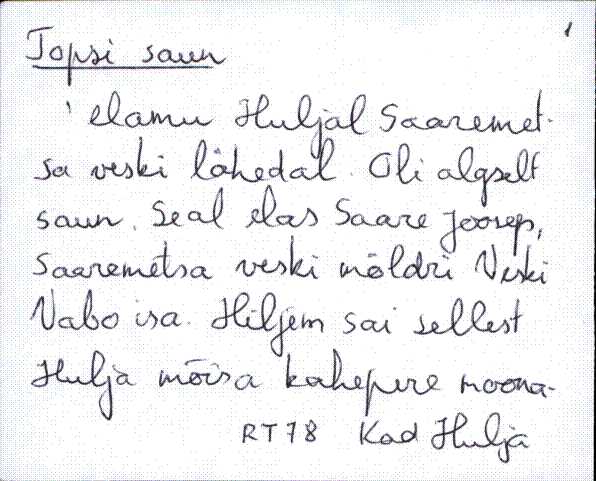 1
Topsi saun
' elamu Huljal Saaremet-
sa veski lähedal. Oli algselt
saun. Seal elas Saare Joosep,
Saaremetsa veski möldri Veski
Vabo isa. Hiljem sai sellest
Hulja mõisa kahepere moona-
RT78 Kad Hulja